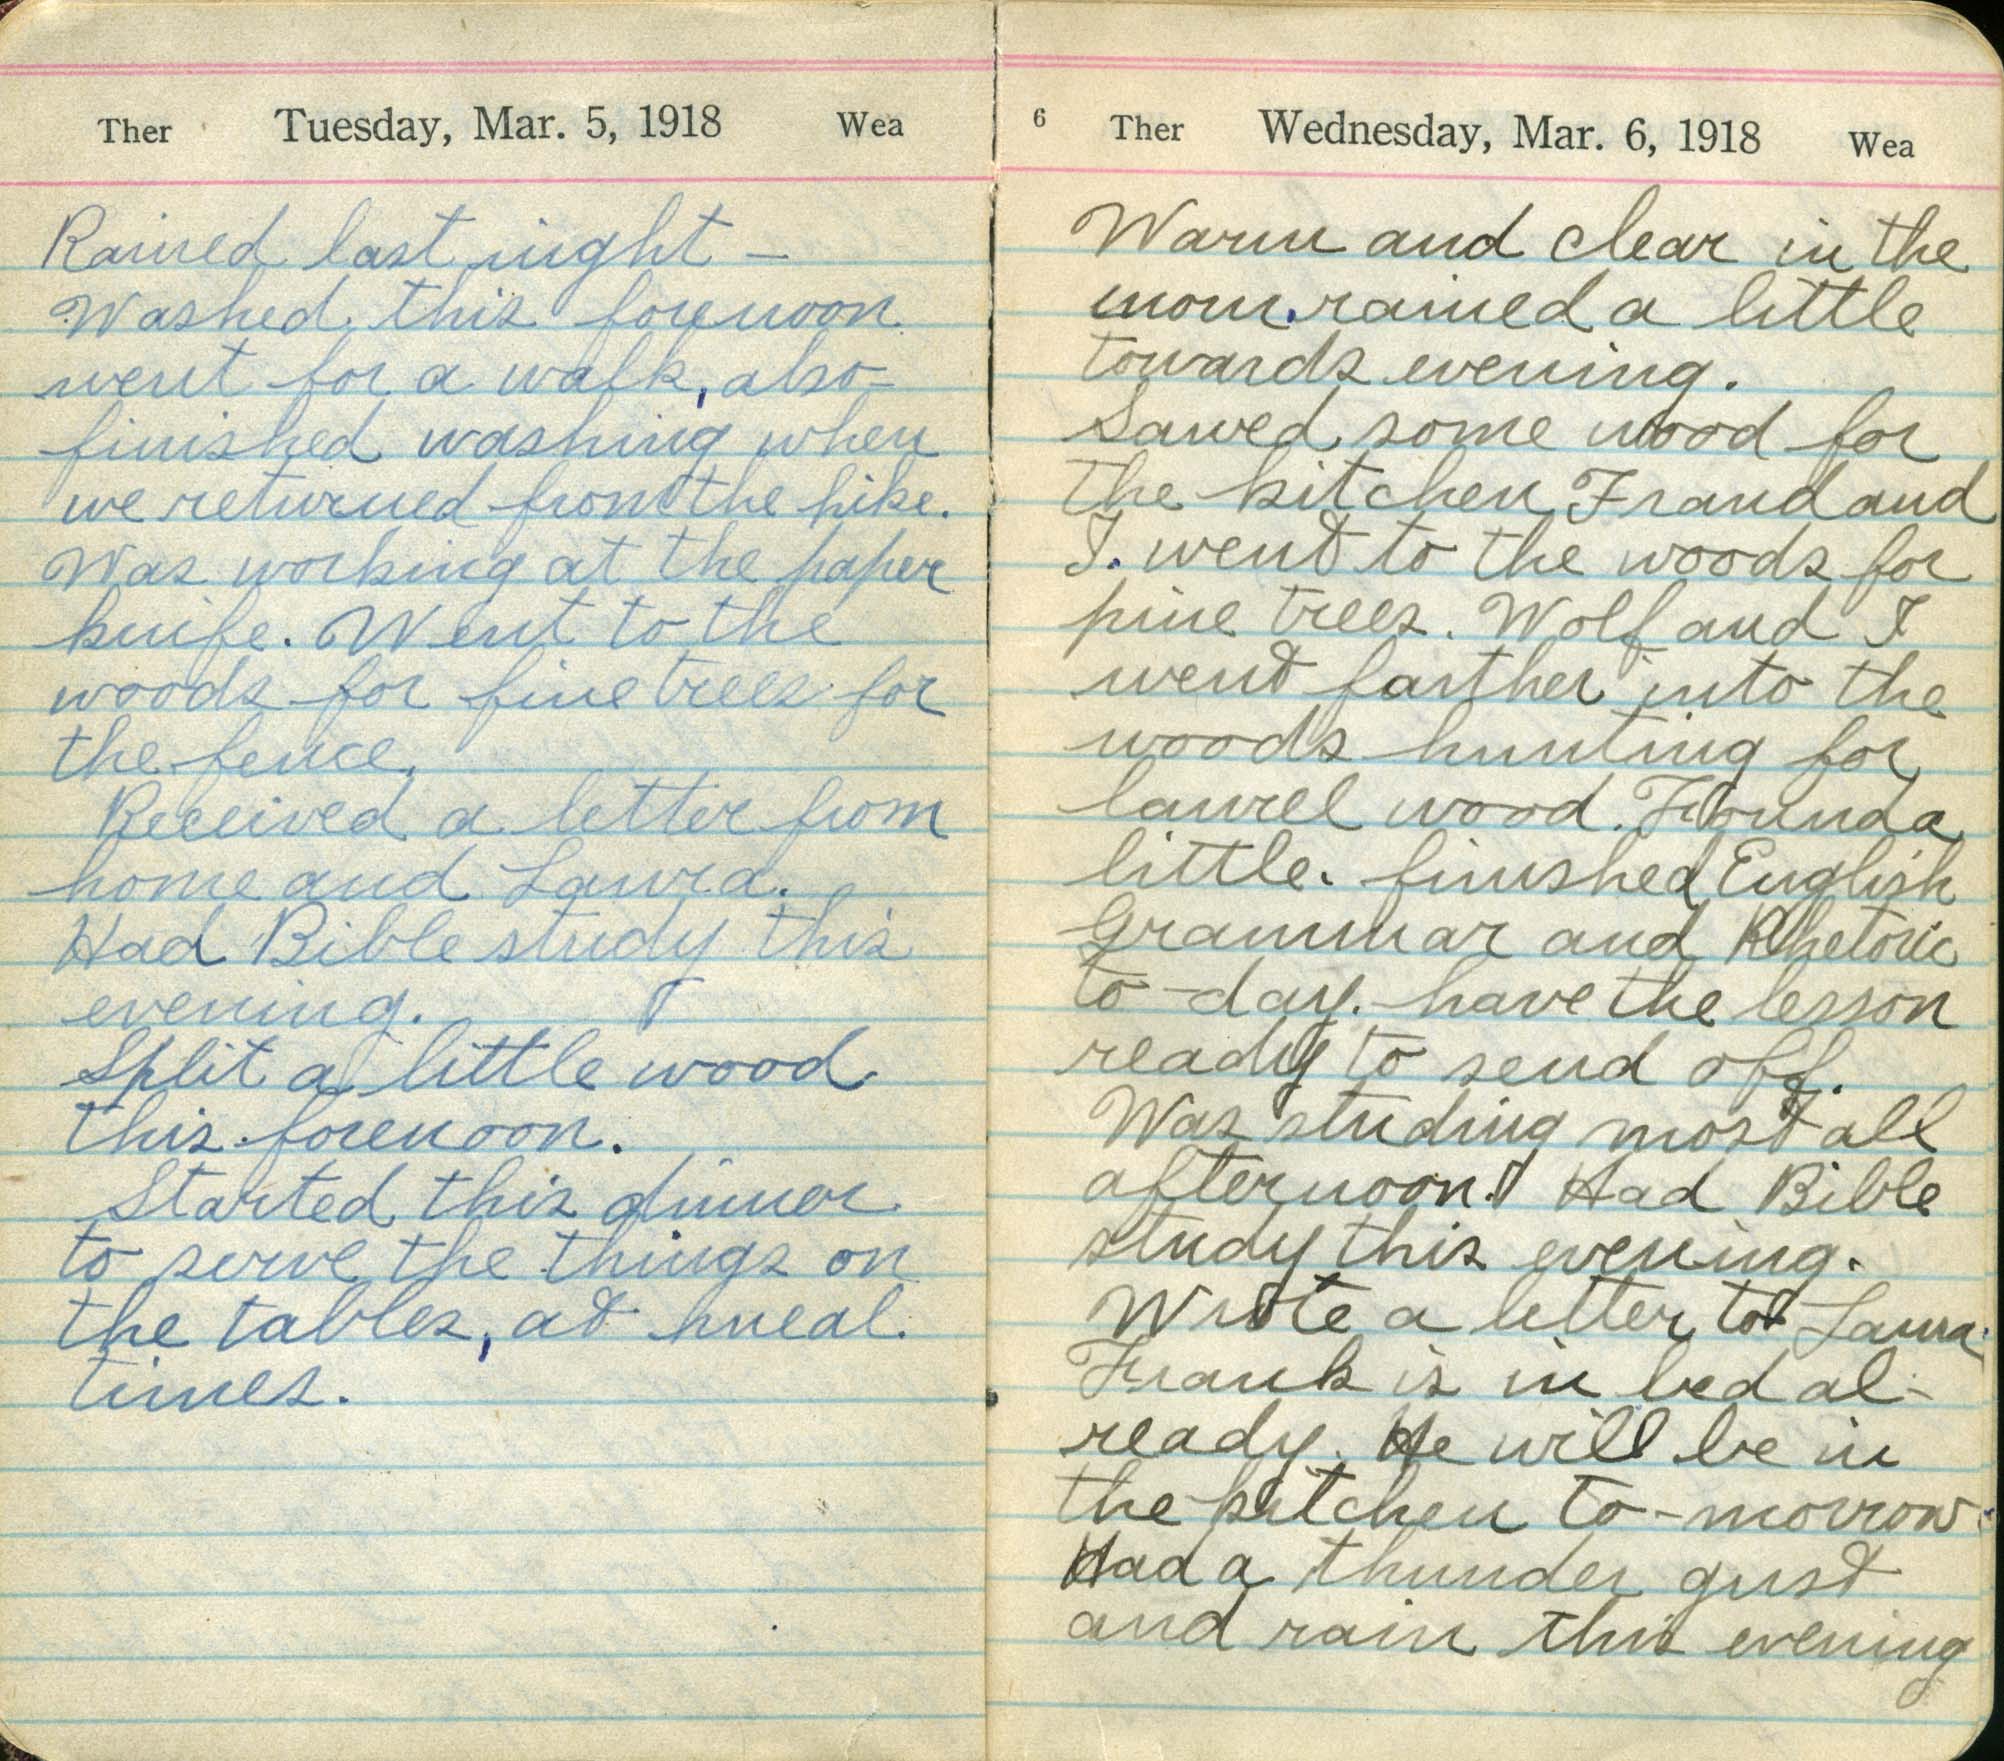 Ther Tuesday, Mar. 5, 1918 Wea
Rained last night –
Washed this forenoon
went for a walk, also
finished washing when
we returned from the hike.
Was working at the paper
knife. Went to the
woods for fine trees for
the fence.
Received a letter from
home and Laura.
Had Bible study this
evening.
Split a little wood
this forenoon.
Started this dinner
to serve the things on
the tables, at meal
times.
6 Ther Wednesday, Mar. 6, 1918 Wea
Warm and clear in the
morn. rained a little
towards evening.
Sawed some wood for
the kitchen Frand and
I. went to the woods for
pine trees. Wolf and I
went farther into the
woods hunting for
laurel wood. Found a
little. finished English
Grammar and Rhetoric
to-day. have the lesson
ready to send off.
Was studing most all
afternoon. Had Bible
study this evening.
Wrote a letter to Laura.
Frank is in bed al-
ready. He will be in
the kitchen to-morrow.
Had a thunder gust
and rain this evening